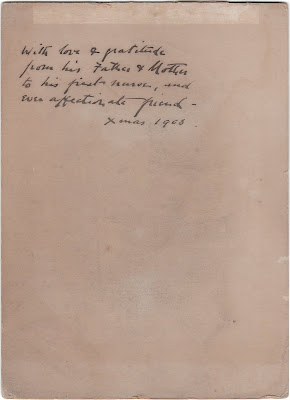 With love & gratitude
from his Father & Mother
to his first nurse, and
ever affectionate friend –
Xmas 1903